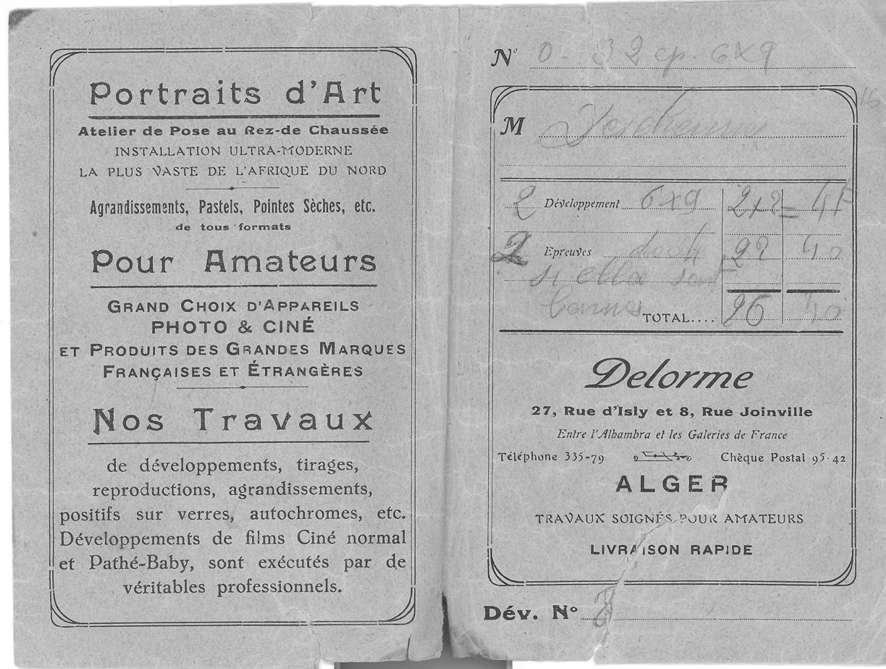 Portraits d'Art
Atelier de Pose au Rez-de Chaussée
INSTALLATION ULTRA-MODERNE
LA PLUS VASTE DE L'AFRIQUE DU NORD
Agrandissements, Pastels, Pointes Sèches, etc.
de tous formats
Pour Amateurs
GRAND CHOIX D'APPAREILS
PHOTO & CINÉ
ET PRODUITS DES GRANDES MARQUES
FRANÇAISES ET ÉTRANGÈRES
Nos Travaux
de développements, tirages,
reproductions, agrandissements,
positifs sur verres, autochromes, etc.
Développements de films Ciné normal
et Pathé-Baby, sont exécutés par de
véritables professionnels.
N° 6x9
M
2 Développement 6x9
2 Epreuves 40
si
TOTAL....
Delorme
27, Rue d'Isly et 8, Rue Joinville
Entre l'Alhambra et les Galeries de France
Téléphone 335-79 Chèque Postal 95-42
ALGER
TRAVAUX SOIGNÉS POUR AMATEURS
LIVRAISON RAPIDE
Dév. N°